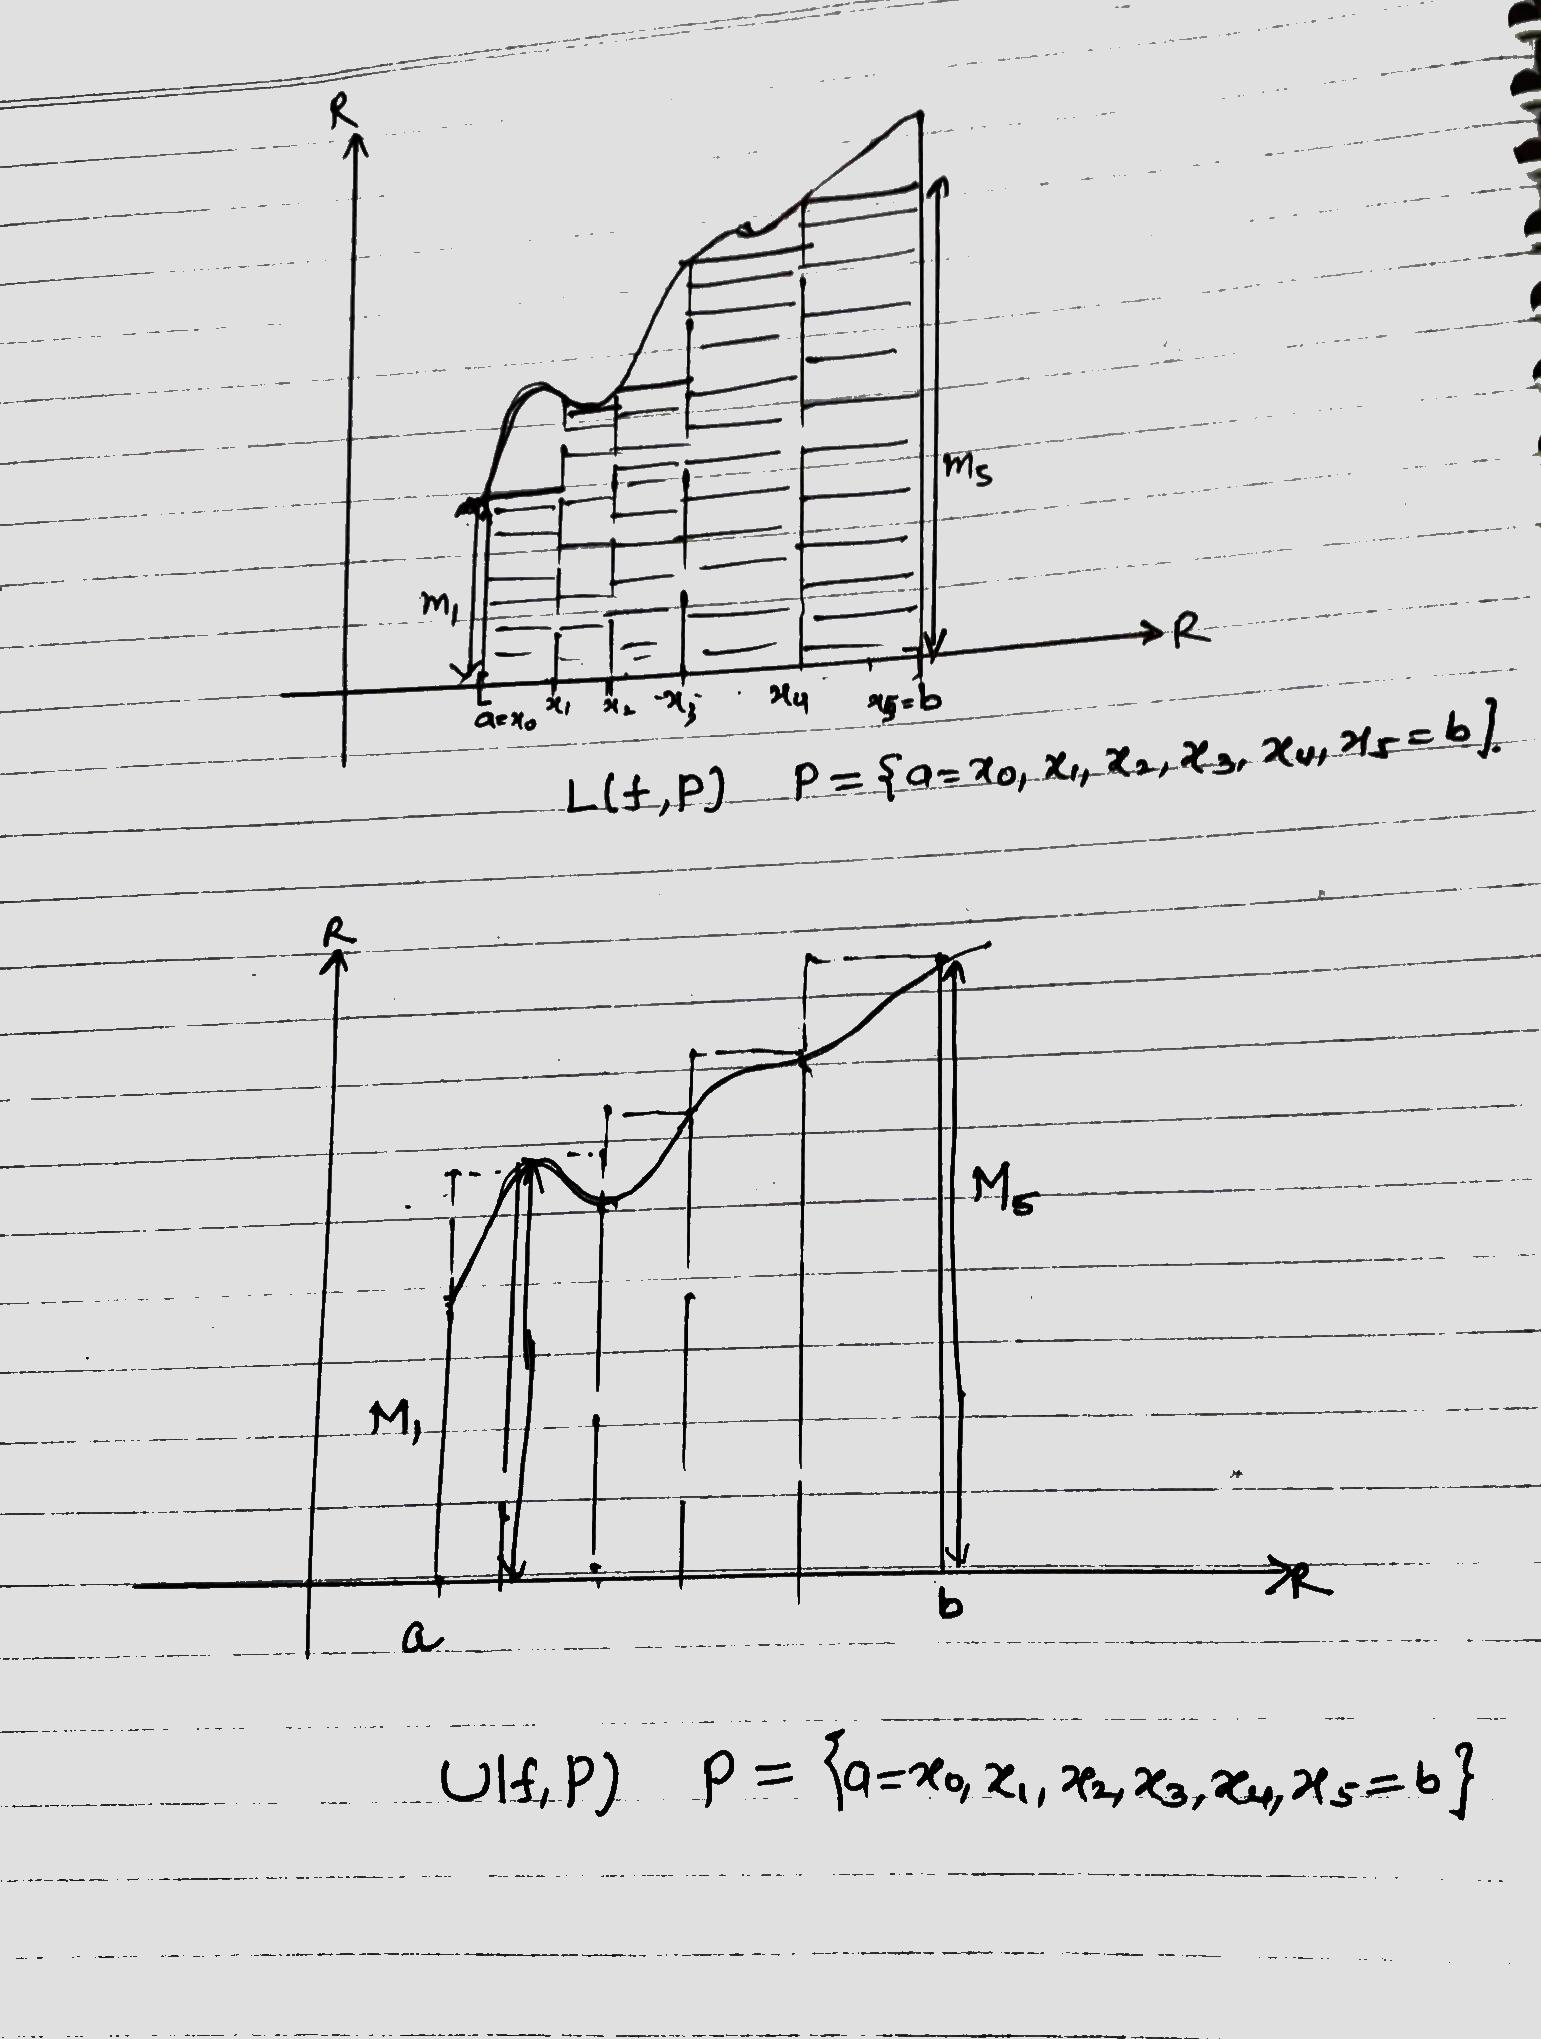 R
m₅
m₁
R
a=x₀ x₁ x₂ x₃ x₄ x₅=b
L(f,P) P={a=x₀, x₁, x₂, x₃, x₄, x₅=b}.
R
M₅
M₁
R
a b
U(f,P) P = {a=x₀, x₁, x₂, x₃, x₄, x₅=b}